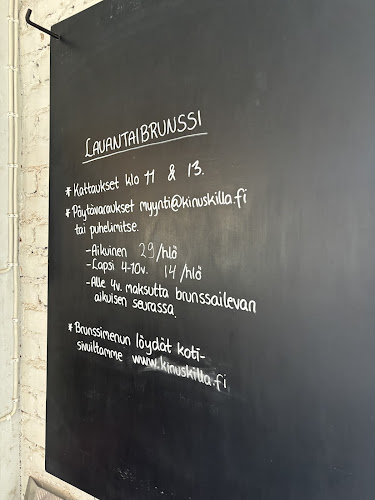 LAUANTAIBRUNSSI
* Kattaukset klo 11 & 13.
* Pöytävaraukset myynti@kinuskilla.fi
tai puhelimitse.
- Aikuinen 29/hlö
- Lapsi 4-10v. 14/hlö
- Alle 4v. maksutta brunssailevan
aikuisen seurassa.
* Brunssimenun löydät koti-
sivuiltamme www.kinuskilla.fi